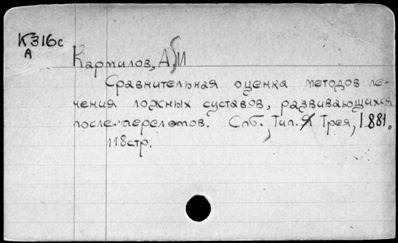 К316с
А
Кармилов, А, И
Сравнительная оценка методов ле-
чения ложных суставов, развивающихся
после переломов. Спб., Тип. Я Трея, 1881.
118стр.